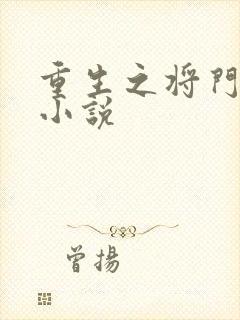 重生之将門
小説
曾揚